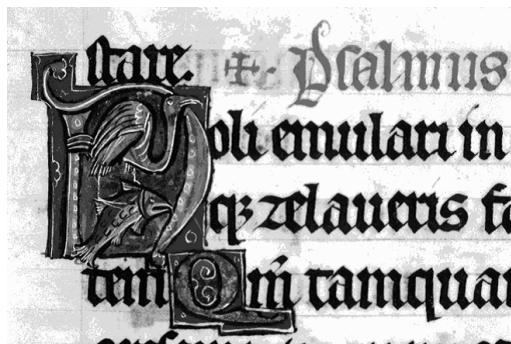 stare. ✠. Psalmus
Noli emulari in
qꝫ zelaueris fa
tem Qm̄ tamqua